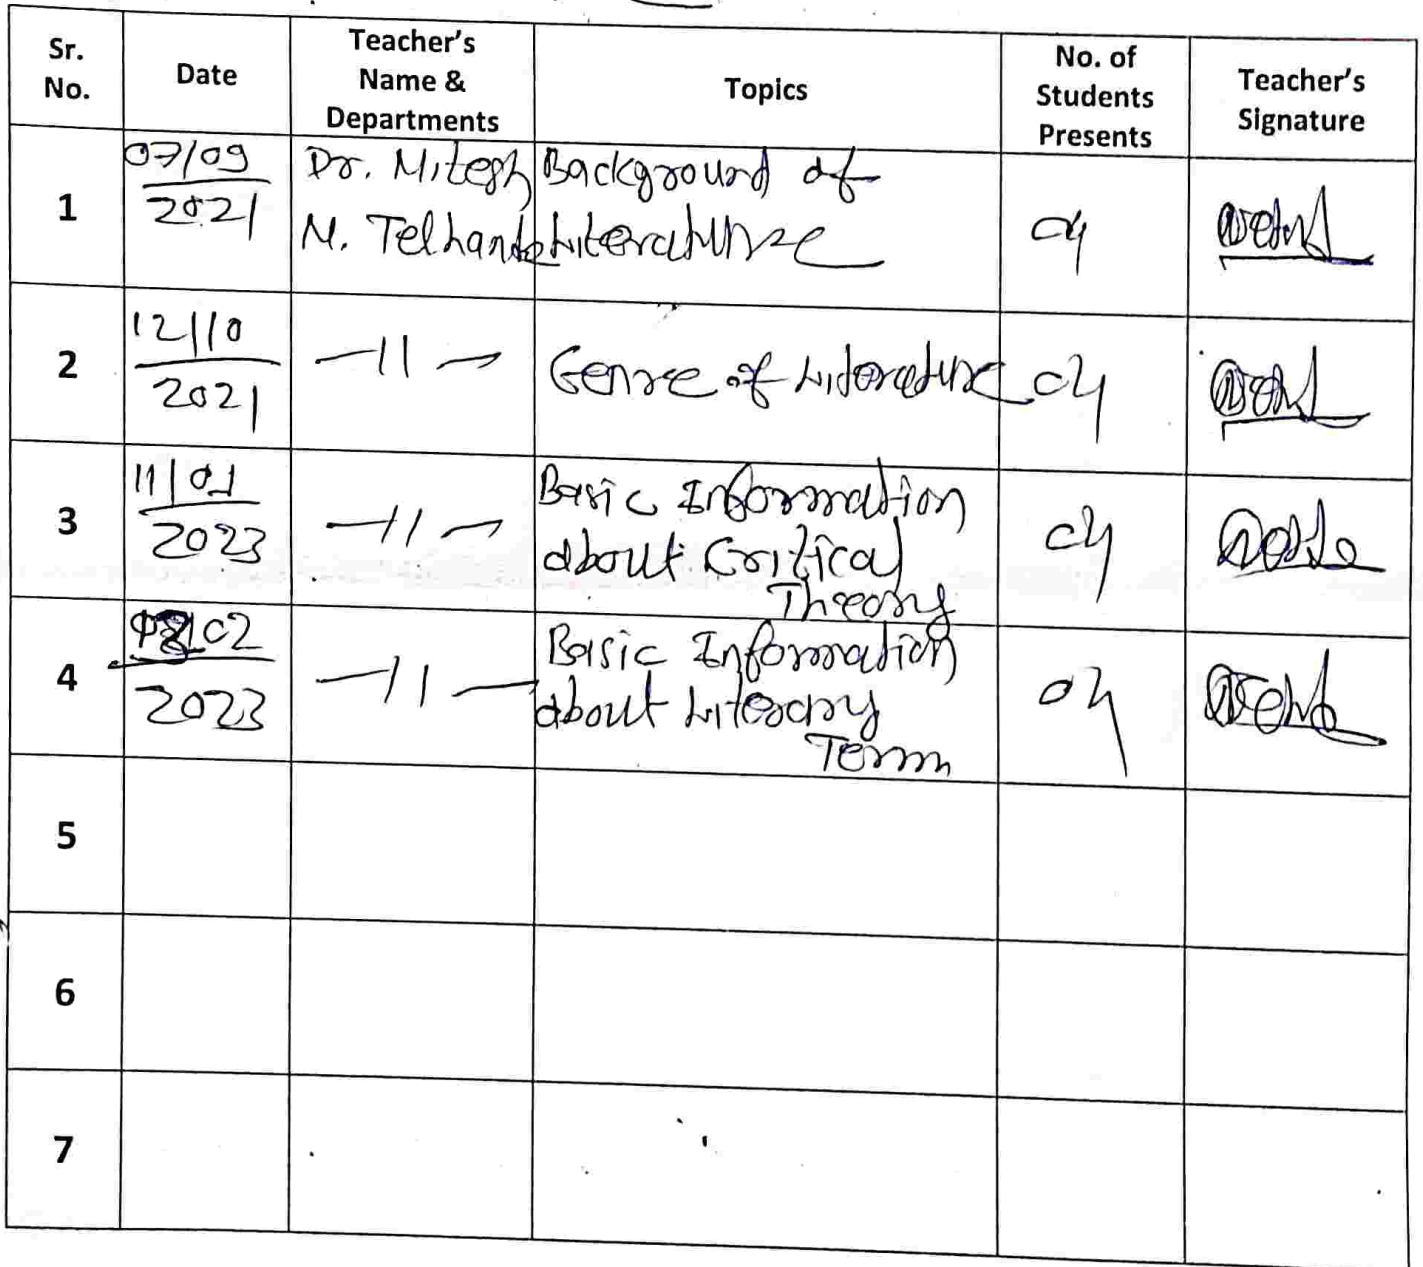 Sr. No. Date Teacher's Name & Departments Topics No. of Students Presents Teacher's Signature
1 07/09 2021 Dr. Mitesh M. Telhande Background of Literature 04
2 12/10 2021 —11— Genre of Literature 04
3 11/01 2023 —11— Basic Information about Critical Theory 04
4 02 2023 —11— Basic Information about Literary Term 04
5
6
7